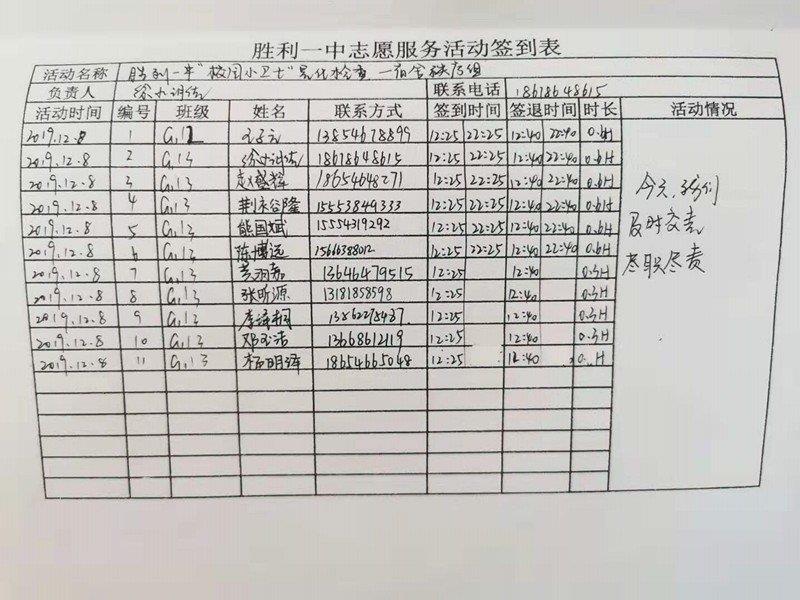 胜利一中志愿服务活动签到表
活动名称 胜利一中"校园小卫士"
负责人 联系电话 18618648615
活动时间 编号 班级 姓名 联系方式 签到时间 签退时间 时长 活动情况
2019.12.8 1 G,12 13854678899 12:25 22:25 12:40 22:40 0.6H
2019.12.8 2 G,13 18618648615 12:25 22:25 12:40 22:40 0.6H
2019.12.8 3 G,13 赵盛辉 18654648271 12:25 22:25 12:40 22:40 0.6H
2019.12.8 4 G,13 荆永谷隆 15553849333 12:25 22:25 12:40 22:40 0.6H
2019.12.8 5 G,13 熊国斌 15554319292 12:25 22:25 12:40 22:40 0.6H
2019.12.8 6 G,13 陈博远 15666388012 12:25 22:25 12:40 22:40 0.6H
2019.12.8 7 G,13 13646479515 12:25 12:40 0.3H
2019.12.8 8 G,13 张昕源 13181858598 12:25 12:40 0.3H
2019.12.8 9 G,13 12:25 12:40 0.3H
2019.12.8 10 G,13 邓玉洁 13668612119 12:25 12:40 0.3H
2019.12.8 11 G,13 杨明泽 18654665048 12:25 12:40
今天,我们
及时交表
尽职尽责